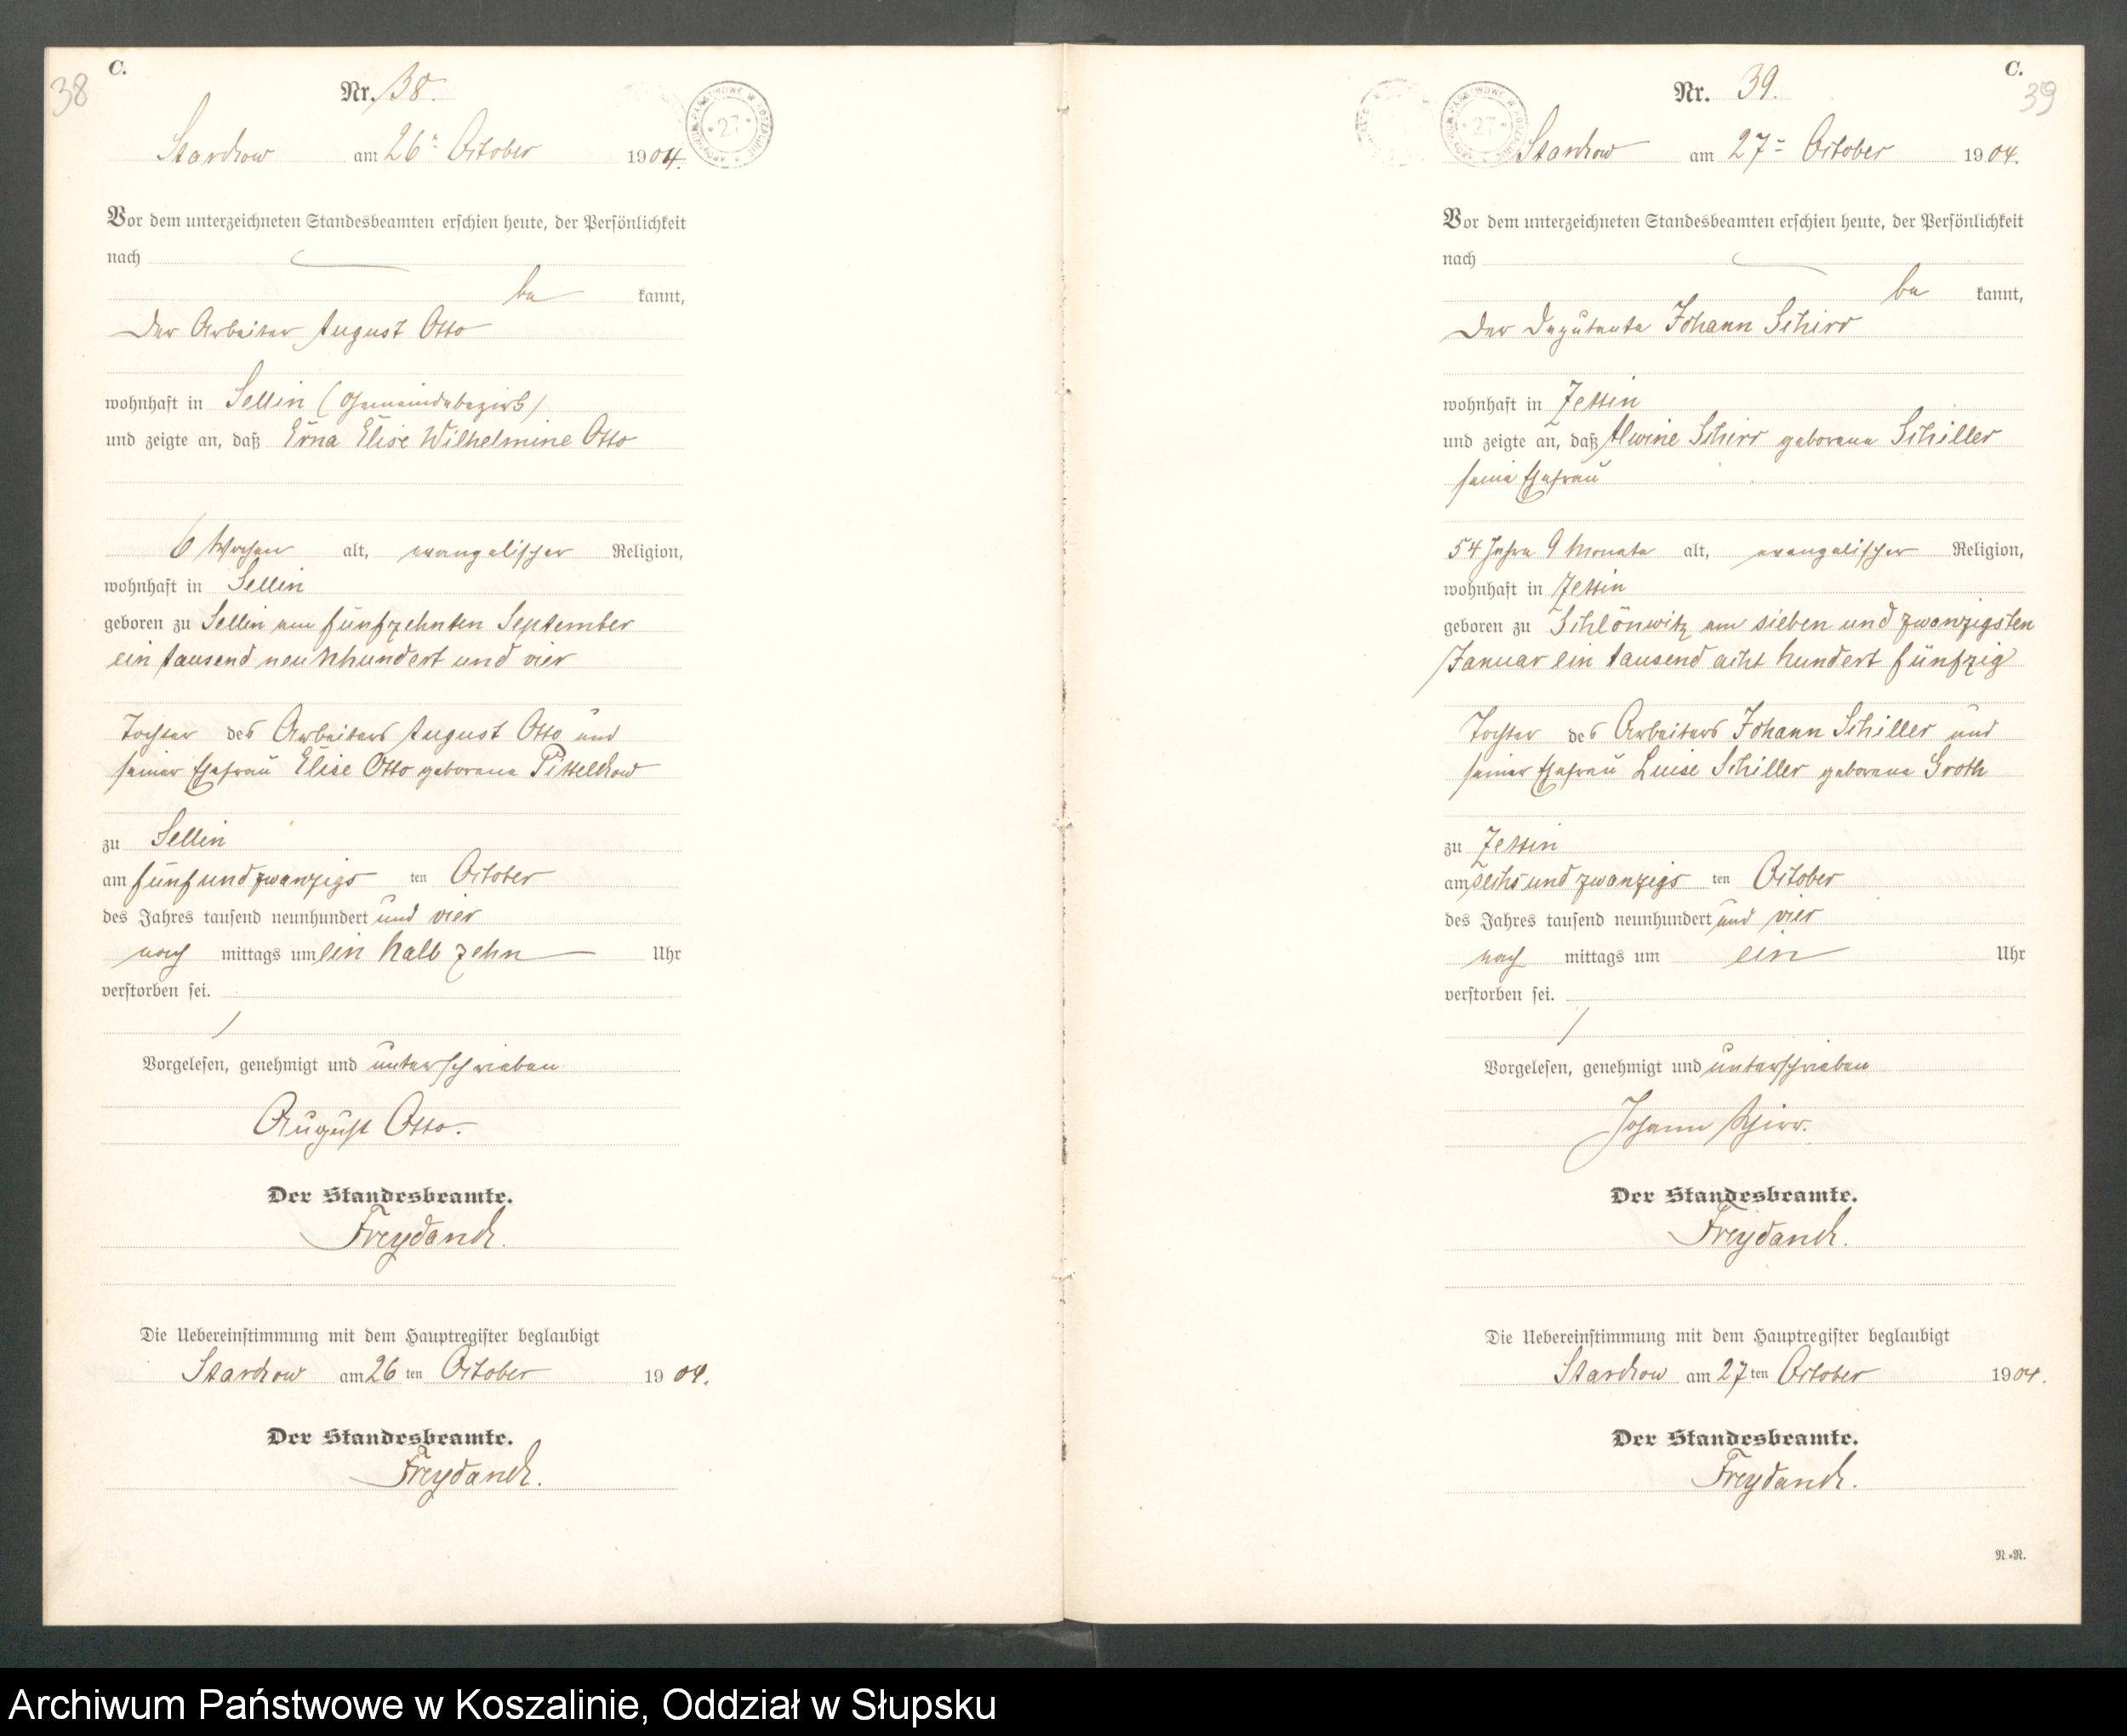 38
C.
Nr. 38.
ARCHIWUM PAŃSTWOWE W KOSZALINIE * 27 *
Starckow am 26ⁿ October 1904.
Vor dem unterzeichneten Standesbeamten erschien heute, der Persönlichkeit
nach
be kannt,
der Arbeiter August Otto
wohnhaft in Sellin (Gemeindebezirk)
und zeigte an, daß Erna Elise Wilhelmine Otto
6 Wochen alt, evangelischer Religion,
wohnhaft in Sellin
geboren zu Sellin am fünfzehnten September
ein tausend neunhundert und vier
Tochter des Arbeiters August Otto und
seiner Ehefrau Elise Otto geborene Pittelkow
zu Sellin
am fünf und zwanzigs ten October
des Jahres tausend neunhundert und vier
nach mittags um ein halb zehn Uhr
verstorben sei.
Vorgelesen, genehmigt und unterschrieben
August Otto.
Der Standesbeamte.
Freydanck.
Die Uebereinstimmung mit dem Hauptregister beglaubigt
Starckow am 26 ten October 1904.
Der Standesbeamte.
Freydanck.
C.
39
Nr. 39.
ARCHIWUM PAŃSTWOWE W KOSZALINIE * 27 *
Starckow am 27ⁿ October 1904.
Vor dem unterzeichneten Standesbeamten erschien heute, der Persönlichkeit
nach
be kannt,
der Deputante Johann Schirr
wohnhaft in Zessin
und zeigte an, daß Alwine Schirr geborene Schiller
seine Ehefrau
54 Jahre 9 Monate alt, evangelischer Religion,
wohnhaft in Zessin
geboren zu Schlönwitz am sieben und zwanzigsten
Januar ein tausend acht hundert fünfzig
Tochter des Arbeiters Johann Schiller und
seiner Ehefrau Luise Schiller geborene Groth
zu Zessin
am sechs und zwanzigs ten October
des Jahres tausend neunhundert und vier
nach mittags um ein Uhr
verstorben sei.
Vorgelesen, genehmigt und unterschrieben
Johann Schirr.
Der Standesbeamte.
Freydanck.
Die Uebereinstimmung mit dem Hauptregister beglaubigt
Starckow am 27 ten October 1904.
Der Standesbeamte.
Freydanck.
N.=R.
Archiwum Państwowe w Koszalinie, Oddział w Słupsku